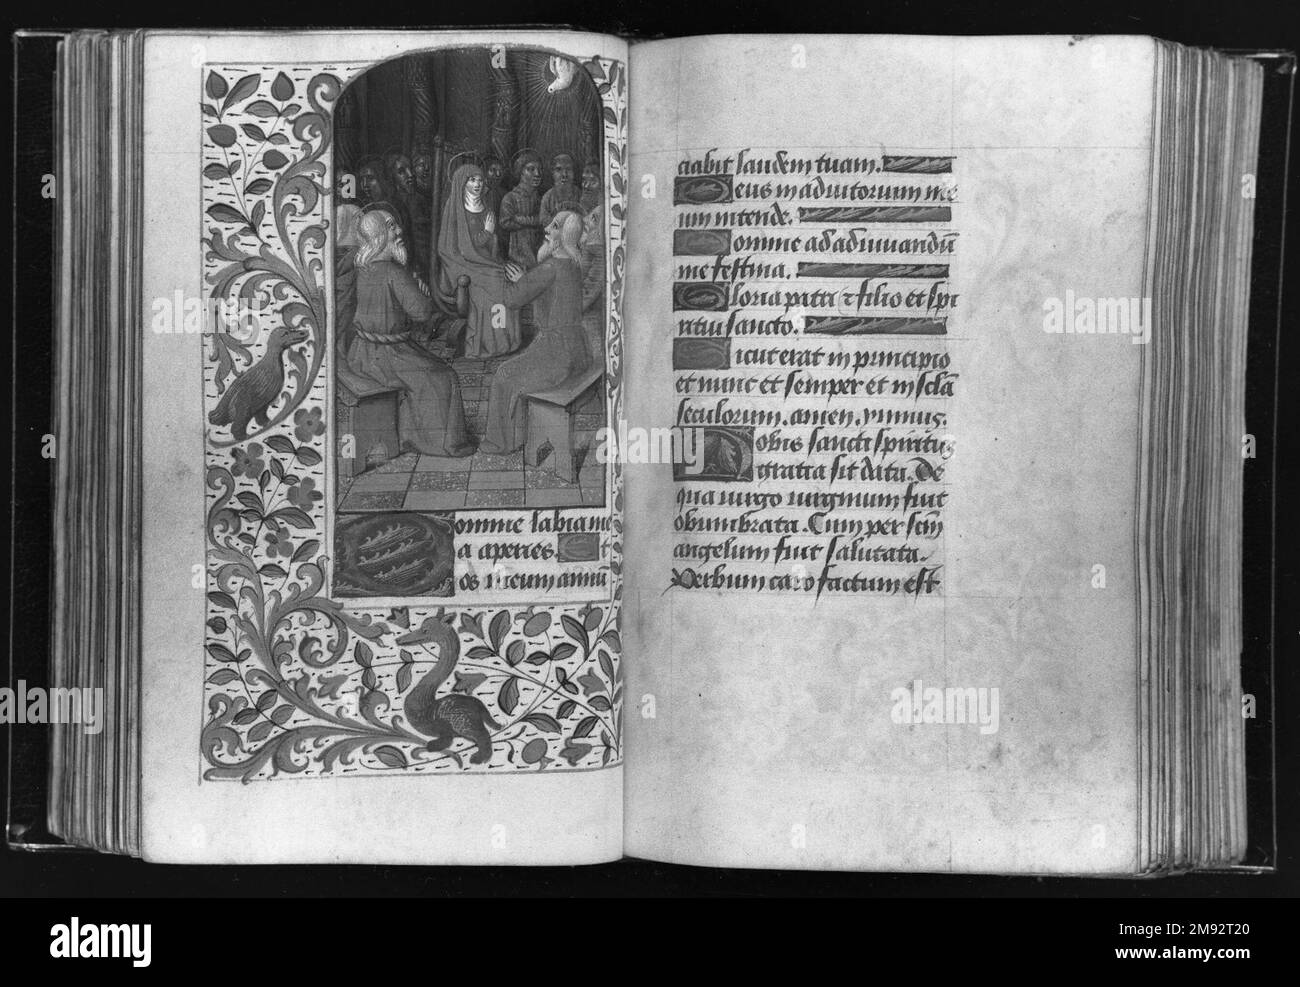 omine labia me
a aperies. Et
os meum annū
ciabit laudem tuam.
Deus in adiutorium me
um intende.
Domine ad adiuuandū
me festina.
Gloria patri ⁊ filio et spi
ritui sancto.
Sicut erat in principio
et nunc et semper et in sc̄la
seculorum. amen. ymnus.
Nobis sancti spiritus
gratia sit data. De
qua uirgo uirginum fuit
obumbrata. Cum per scm̄
angelum fuit salutata.
Verbum caro factum est
alamy
Image ID: 2M92T20
www.alamy.com